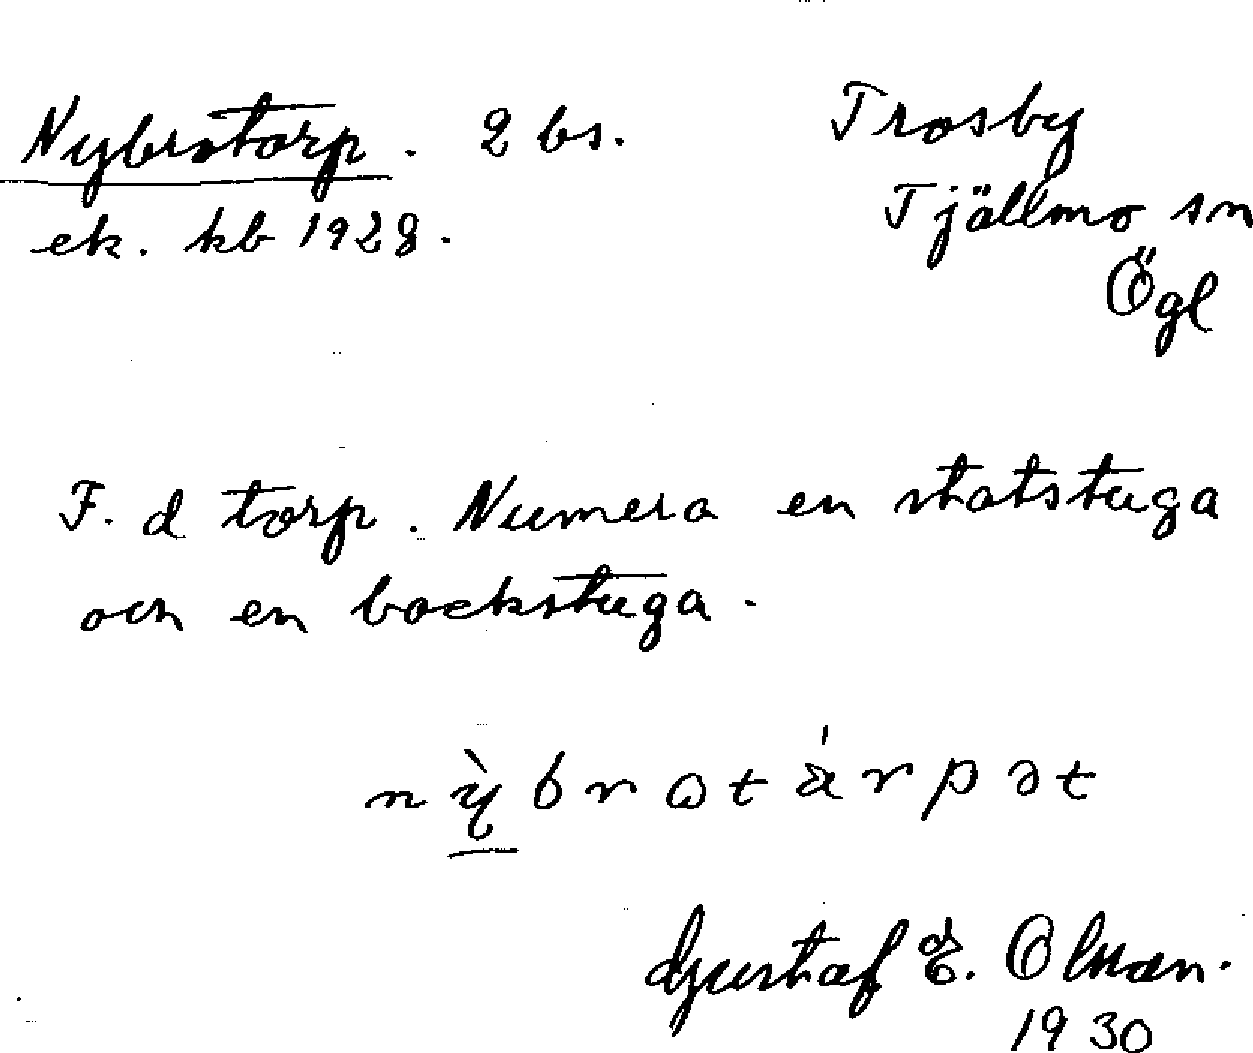 Nybrotorp. 2 bs. Trosby
ek. kb 1928. Tjällmo sn
Ögl
F. d torp. Numera en statstuga
och en backstuga.
nỳbrotárpət
Gustaf E. Olsson.
1930